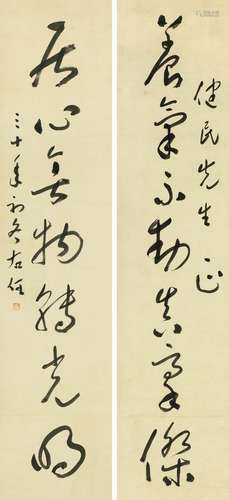 健民先生正
養氣不動真豪傑
居心無物轉光明
三十年初冬 右任